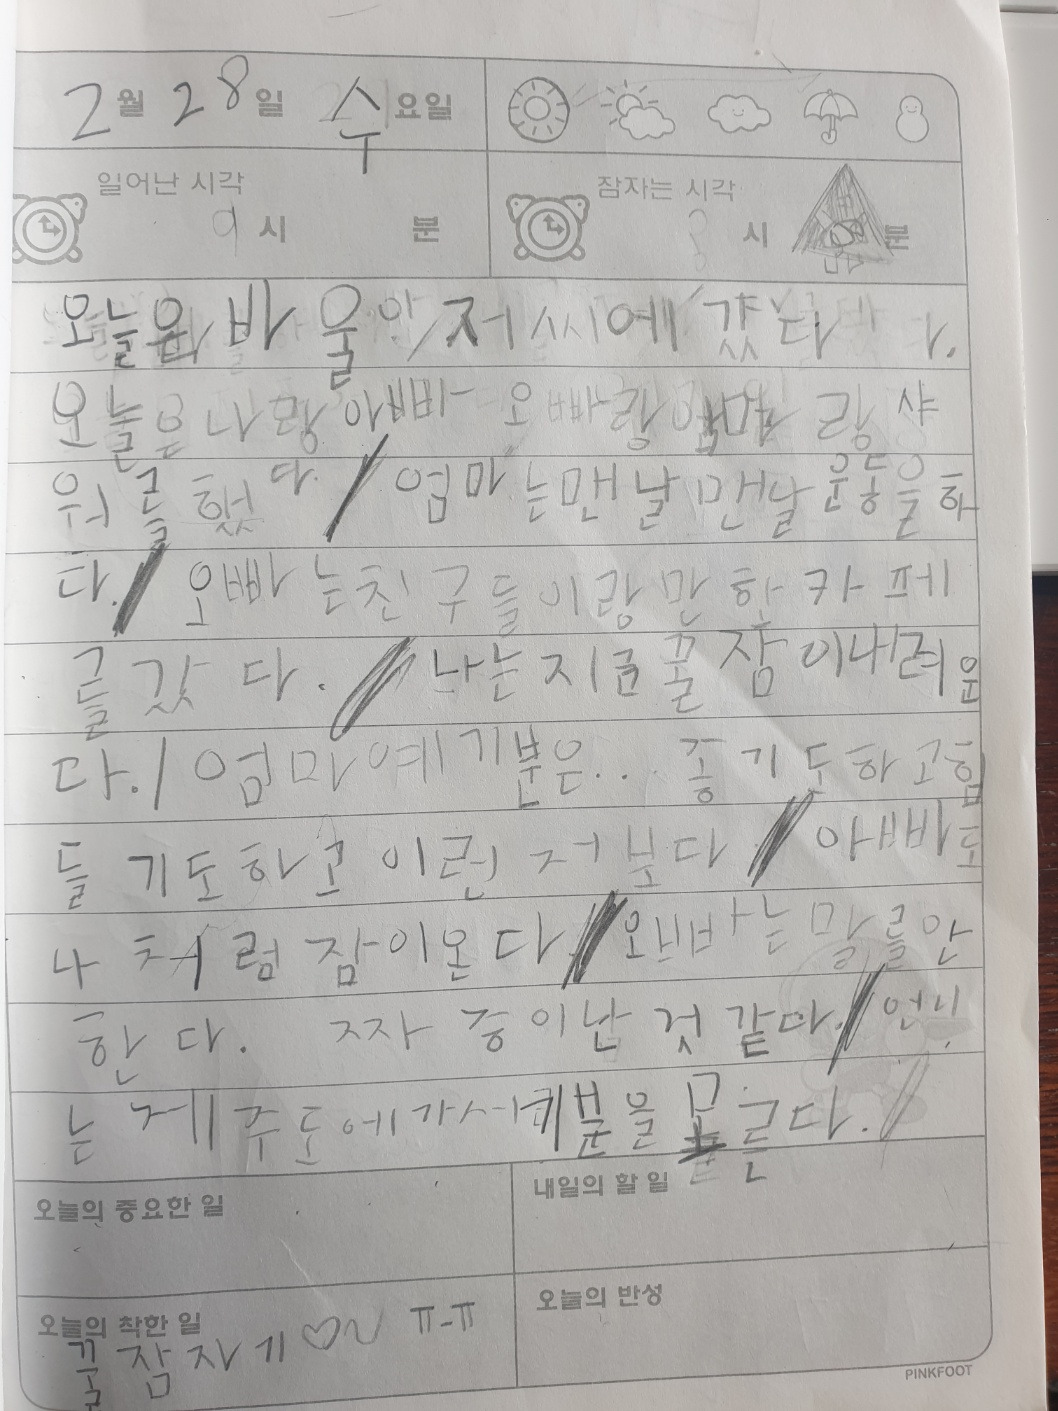 2월 28일 수요일
일어난 시각 잠자는 시각
9시 분 시 분
오늘은 에 갔다.
오늘은 나랑 아빠 오빠랑 엄마 랑 샤
워를 했다. / 엄마는맨날맨날운동을하
다. / 오빠는친구들이랑만화카페
를갔다. / 나는지금꿀잠이내려온
다. / 엄마에 기분은.. 좋기도하고힘
들기도하고 이런 가보다 / 아빠도
나처럼잠이온다 / 오빠는말을안
한다. 짜증이난것같다. / 언니
는 제주도에가서 기분을모른다. /
오늘의 중요한 일
내일의 할 일
오늘의 착한 일
꿀잠자기♡~ ㅠ-ㅠ
오늘의 반성
PINKFOOT